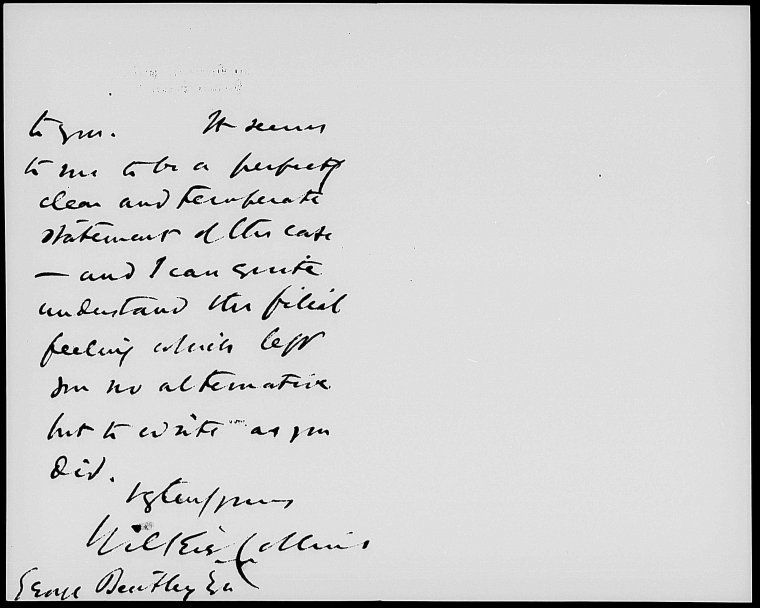 to you. It seems
to me to be a perfectly
clear and temperate
statement of the case
— and I can quite
understand the filial
feeling which left
you no alternative
but to write as you
did.
Vy truly yours
Wilkie Collins
George Bentley Esq